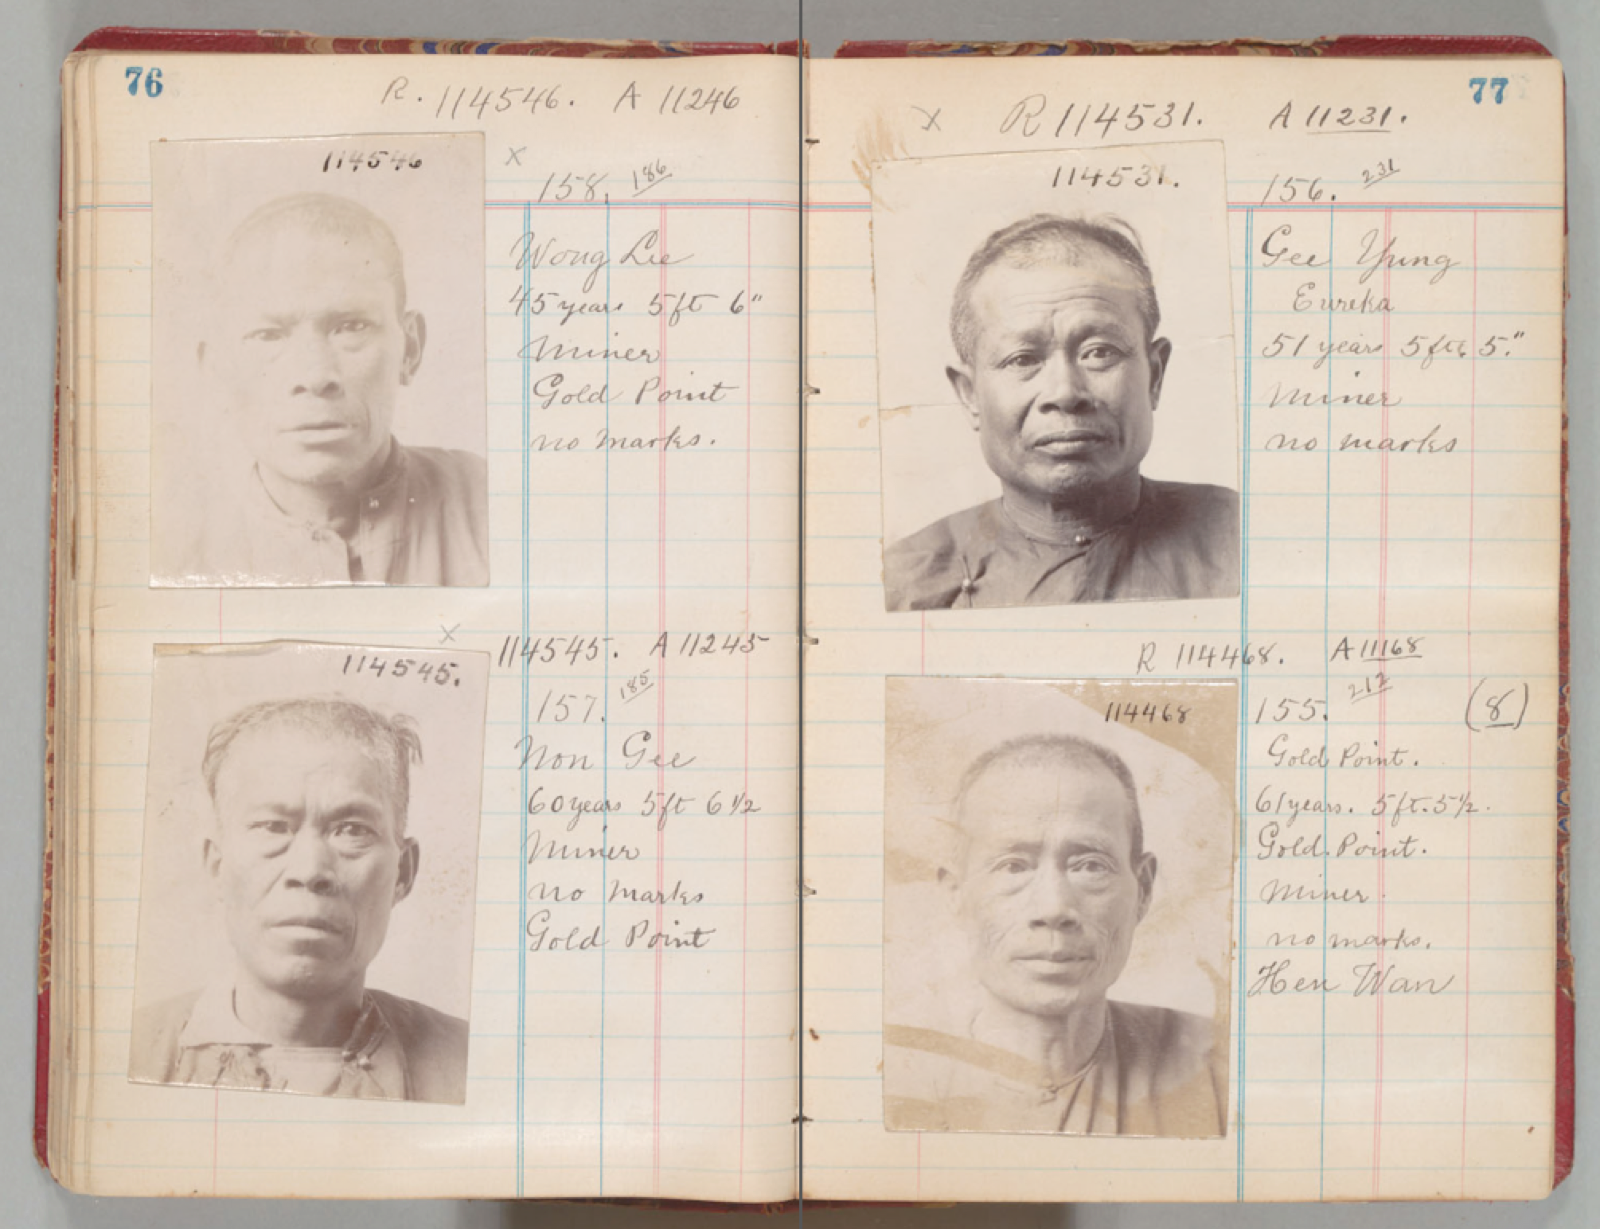 76
R. 114546. A 11246
114546
x
158. 186
Wong Lee
45 years 5ft 6"
Miner
Gold Point
no marks.
x 114545. A 11245
114545.
157. 185
Non Gee
60 years 5ft 6 1/2
Miner
no marks
Gold Point
77
x R 114531. A 11231.
114531.
156. 231
Gee Yung
Eureka
51 years 5ft 5."
Miner
no marks
R 114468. A 11168
114468
155. 212 (8)
Gold Point.
61 years. 5ft. 5 1/2.
Gold Point.
Miner.
no marks.
Hen Wan